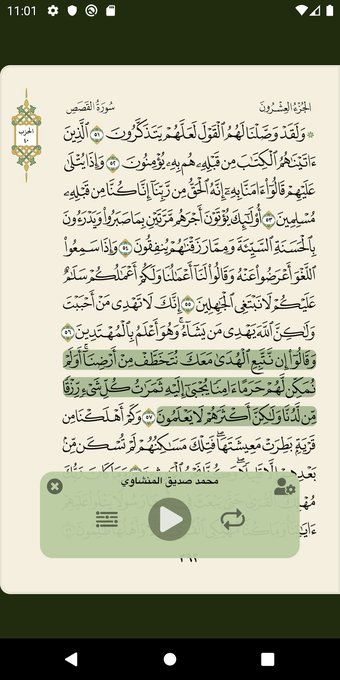 11:01
الجُزْءُ العِشْرُونَ
سُورَةُ القَصَصِ
الحزب
٤٠
۞ وَلَقَدْ وَصَّلْنَا لَهُمُ ٱلْقَوْلَ لَعَلَّهُمْ يَتَذَكَّرُونَ ٥١ ٱلَّذِينَ
ءَاتَيْنَٰهُمُ ٱلْكِتَٰبَ مِن قَبْلِهِۦ هُم بِهِۦ يُؤْمِنُونَ ٥٢ وَإِذَا يُتْلَىٰ
عَلَيْهِمْ قَالُوٓا۟ ءَامَنَّا بِهِۦٓ إِنَّهُ ٱلْحَقُّ مِن رَّبِّنَآ إِنَّا كُنَّا مِن قَبْلِهِۦ
مُسْلِمِينَ ٥٣ أُو۟لَٰٓئِكَ يُؤْتَوْنَ أَجْرَهُم مَّرَّتَيْنِ بِمَا صَبَرُوا۟ وَيَدْرَءُونَ
بِٱلْحَسَنَةِ ٱلسَّيِّئَةَ وَمِمَّا رَزَقْنَٰهُمْ يُنفِقُونَ ٥٤ وَإِذَا سَمِعُوا۟
ٱللَّغْوَ أَعْرَضُوا۟ عَنْهُ وَقَالُوا۟ لَنَآ أَعْمَٰلُنَا وَلَكُمْ أَعْمَٰلُكُمْ سَلَٰمٌ
عَلَيْكُمْ لَا نَبْتَغِى ٱلْجَٰهِلِينَ ٥٥ إِنَّكَ لَا تَهْدِى مَنْ أَحْبَبْتَ
وَلَٰكِنَّ ٱللَّهَ يَهْدِى مَن يَشَآءُ ۚ وَهُوَ أَعْلَمُ بِٱلْمُهْتَدِينَ ٥٦
وَقَالُوٓا۟ إِن نَّتَّبِعِ ٱلْهُدَىٰ مَعَكَ نُتَخَطَّفْ مِنْ أَرْضِنَآ ۚ أَوَلَمْ
نُمَكِّن لَّهُمْ حَرَمًا ءَامِنًا يُجْبَىٰٓ إِلَيْهِ ثَمَرَٰتُ كُلِّ شَىْءٍ رِّزْقًا
مِّن لَّدُنَّا وَلَٰكِنَّ أَكْثَرَهُمْ لَا يَعْلَمُونَ ٥٧ وَكَمْ أَهْلَكْنَا مِن
قَرْيَةٍۭ بَطِرَتْ مَعِيشَتَهَا ۖ فَتِلْكَ مَسَٰكِنُهُمْ لَمْ تُسْكَن مِّنۢ
بَعْدِهِمْ إِلَّا قَلِيلًا
محمد صديق المنشاوي